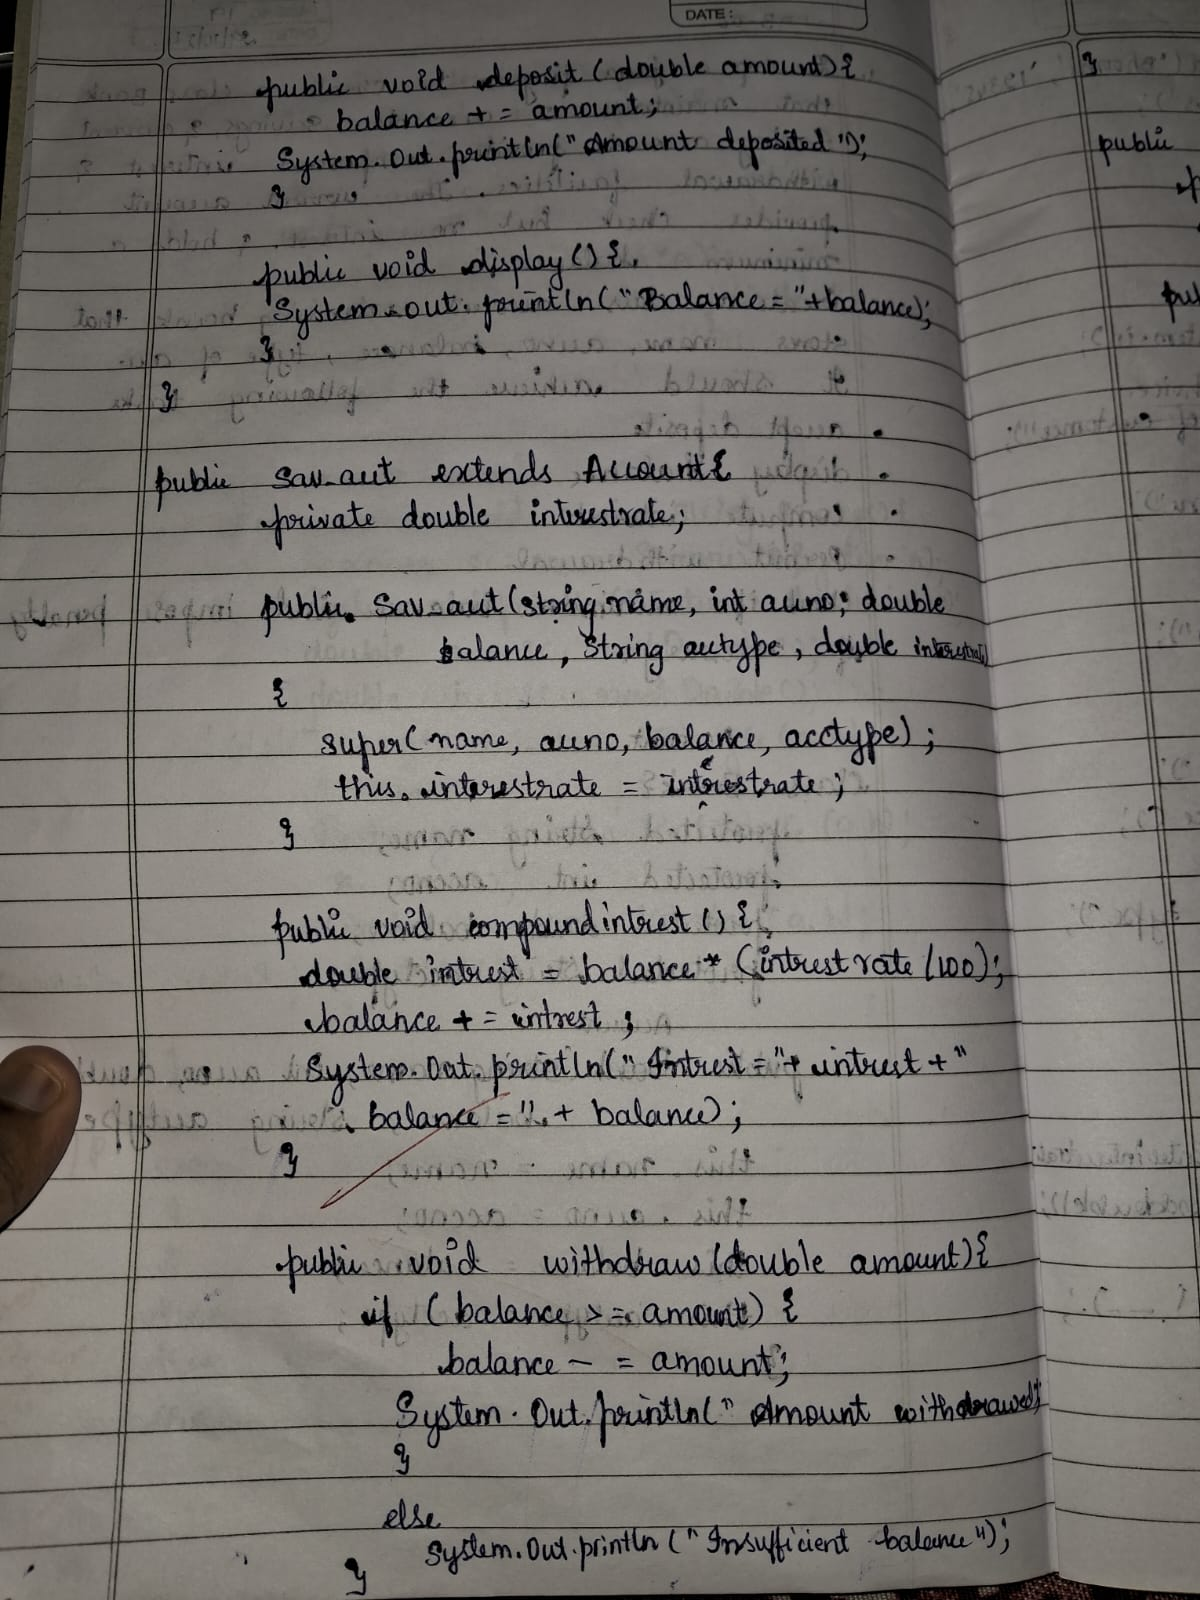 DATE:
public void deposit (double amount) {
balance += amount;
System.Out.println("Amount deposited");
}
public void display () {
System.out.println("Balance = "+balance);
}
}
public Sav_acct extends Account {
private double interestrate;
public Sav_acct (String name, int accno, double
balance, String acctype, double interestrate)
{
super(name, accno, balance, acctype);
this.interestrate = interestrate;
}
public void compoundintrest () {
double intrest = balance * (intrest rate /100);
balance += intrest;
System.Out.println(" Intrest = "+ intrest + "
balance = " + balance);
}
public void withdraw (double amount) {
if (balance >= amount) {
balance -= amount;
System.Out.println(" Amount withdrawed
}
else
System.Out.println (" Insufficient balance");
}
}
public